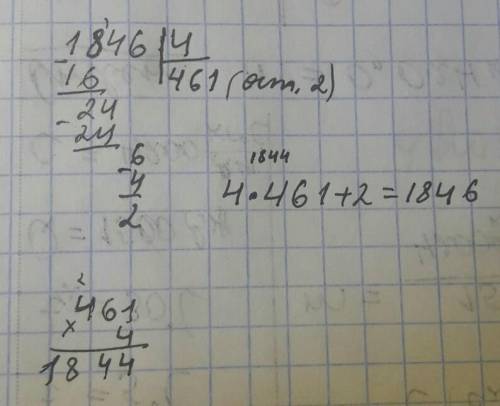 1846 | 4
- 16 461 (ост. 2)
- 24
24
- 6
4
2
1844
4·461+2=1846
2
461
× 4
1844